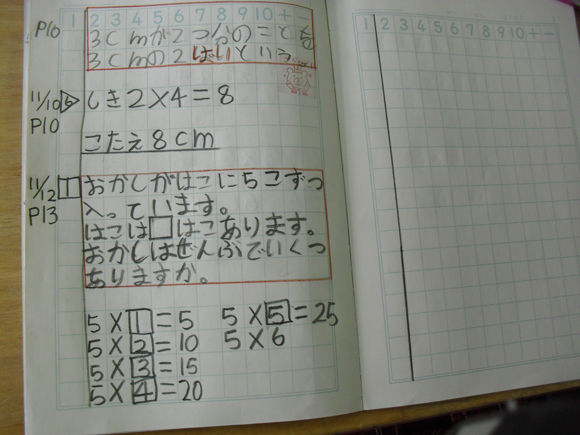 1 2 3 4 5 6 7 8 9 10 + -
P10
3cmが2つ分のことを
3cmの2ばいという。
11/10 6 しき2×4=8
P10
こたえ8cm
11/12 1 おかしがはこに5こずつ
P13
入っています。
はこは□はこあります。
おかしはぜんぶでいくつ
ありますか。
5×1=5 5×5=25
5×2=10 5×6
5×3=15
5×4=20
1 2 3 4 5 6 7 8 9 10 + -